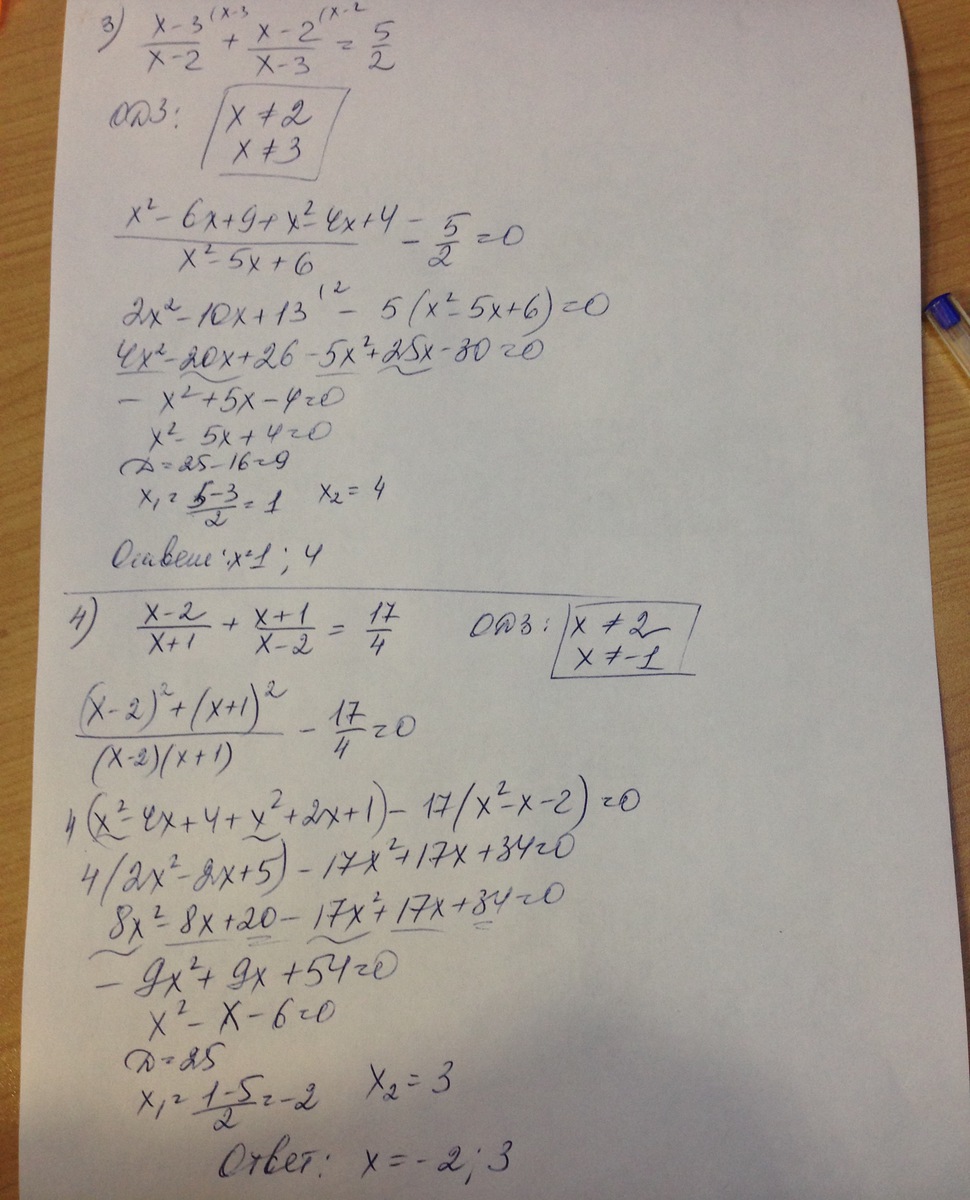 3) (x-3)/(x-2) (x-3 + (x-2)/(x-3) (x-2 = 5/2
ОДЗ: x ≠ 2
x ≠ 3
(x²-6x+9+x²-4x+4)/(x²-5x+6) - 5/2 = 0
2x²-10x+13 (2 - 5(x²-5x+6)=0
4x²-20x+26-5x²+25x-30=0
-x²+5x-4=0
x²-5x+4=0
D=25-16=9
x₁=(5-3)/2=1 x₂=4
Ответ: x=1; 4
4) (x-2)/(x+1) + (x+1)/(x-2) = 17/4 ОДЗ: x ≠ 2
x ≠ -1
((x-2)²+(x+1)²)/((x-2)(x+1)) - 17/4 = 0
4(x²-4x+4+x²+2x+1)-17(x²-x-2)=0
4(2x²-2x+5)-17x²+17x+34=0
8x²-8x+20-17x²+17x+34=0
-9x²+9x+54=0
x²-x-6=0
D=25
x₁=(1-5)/2=-2 x₂=3
Ответ: x=-2; 3